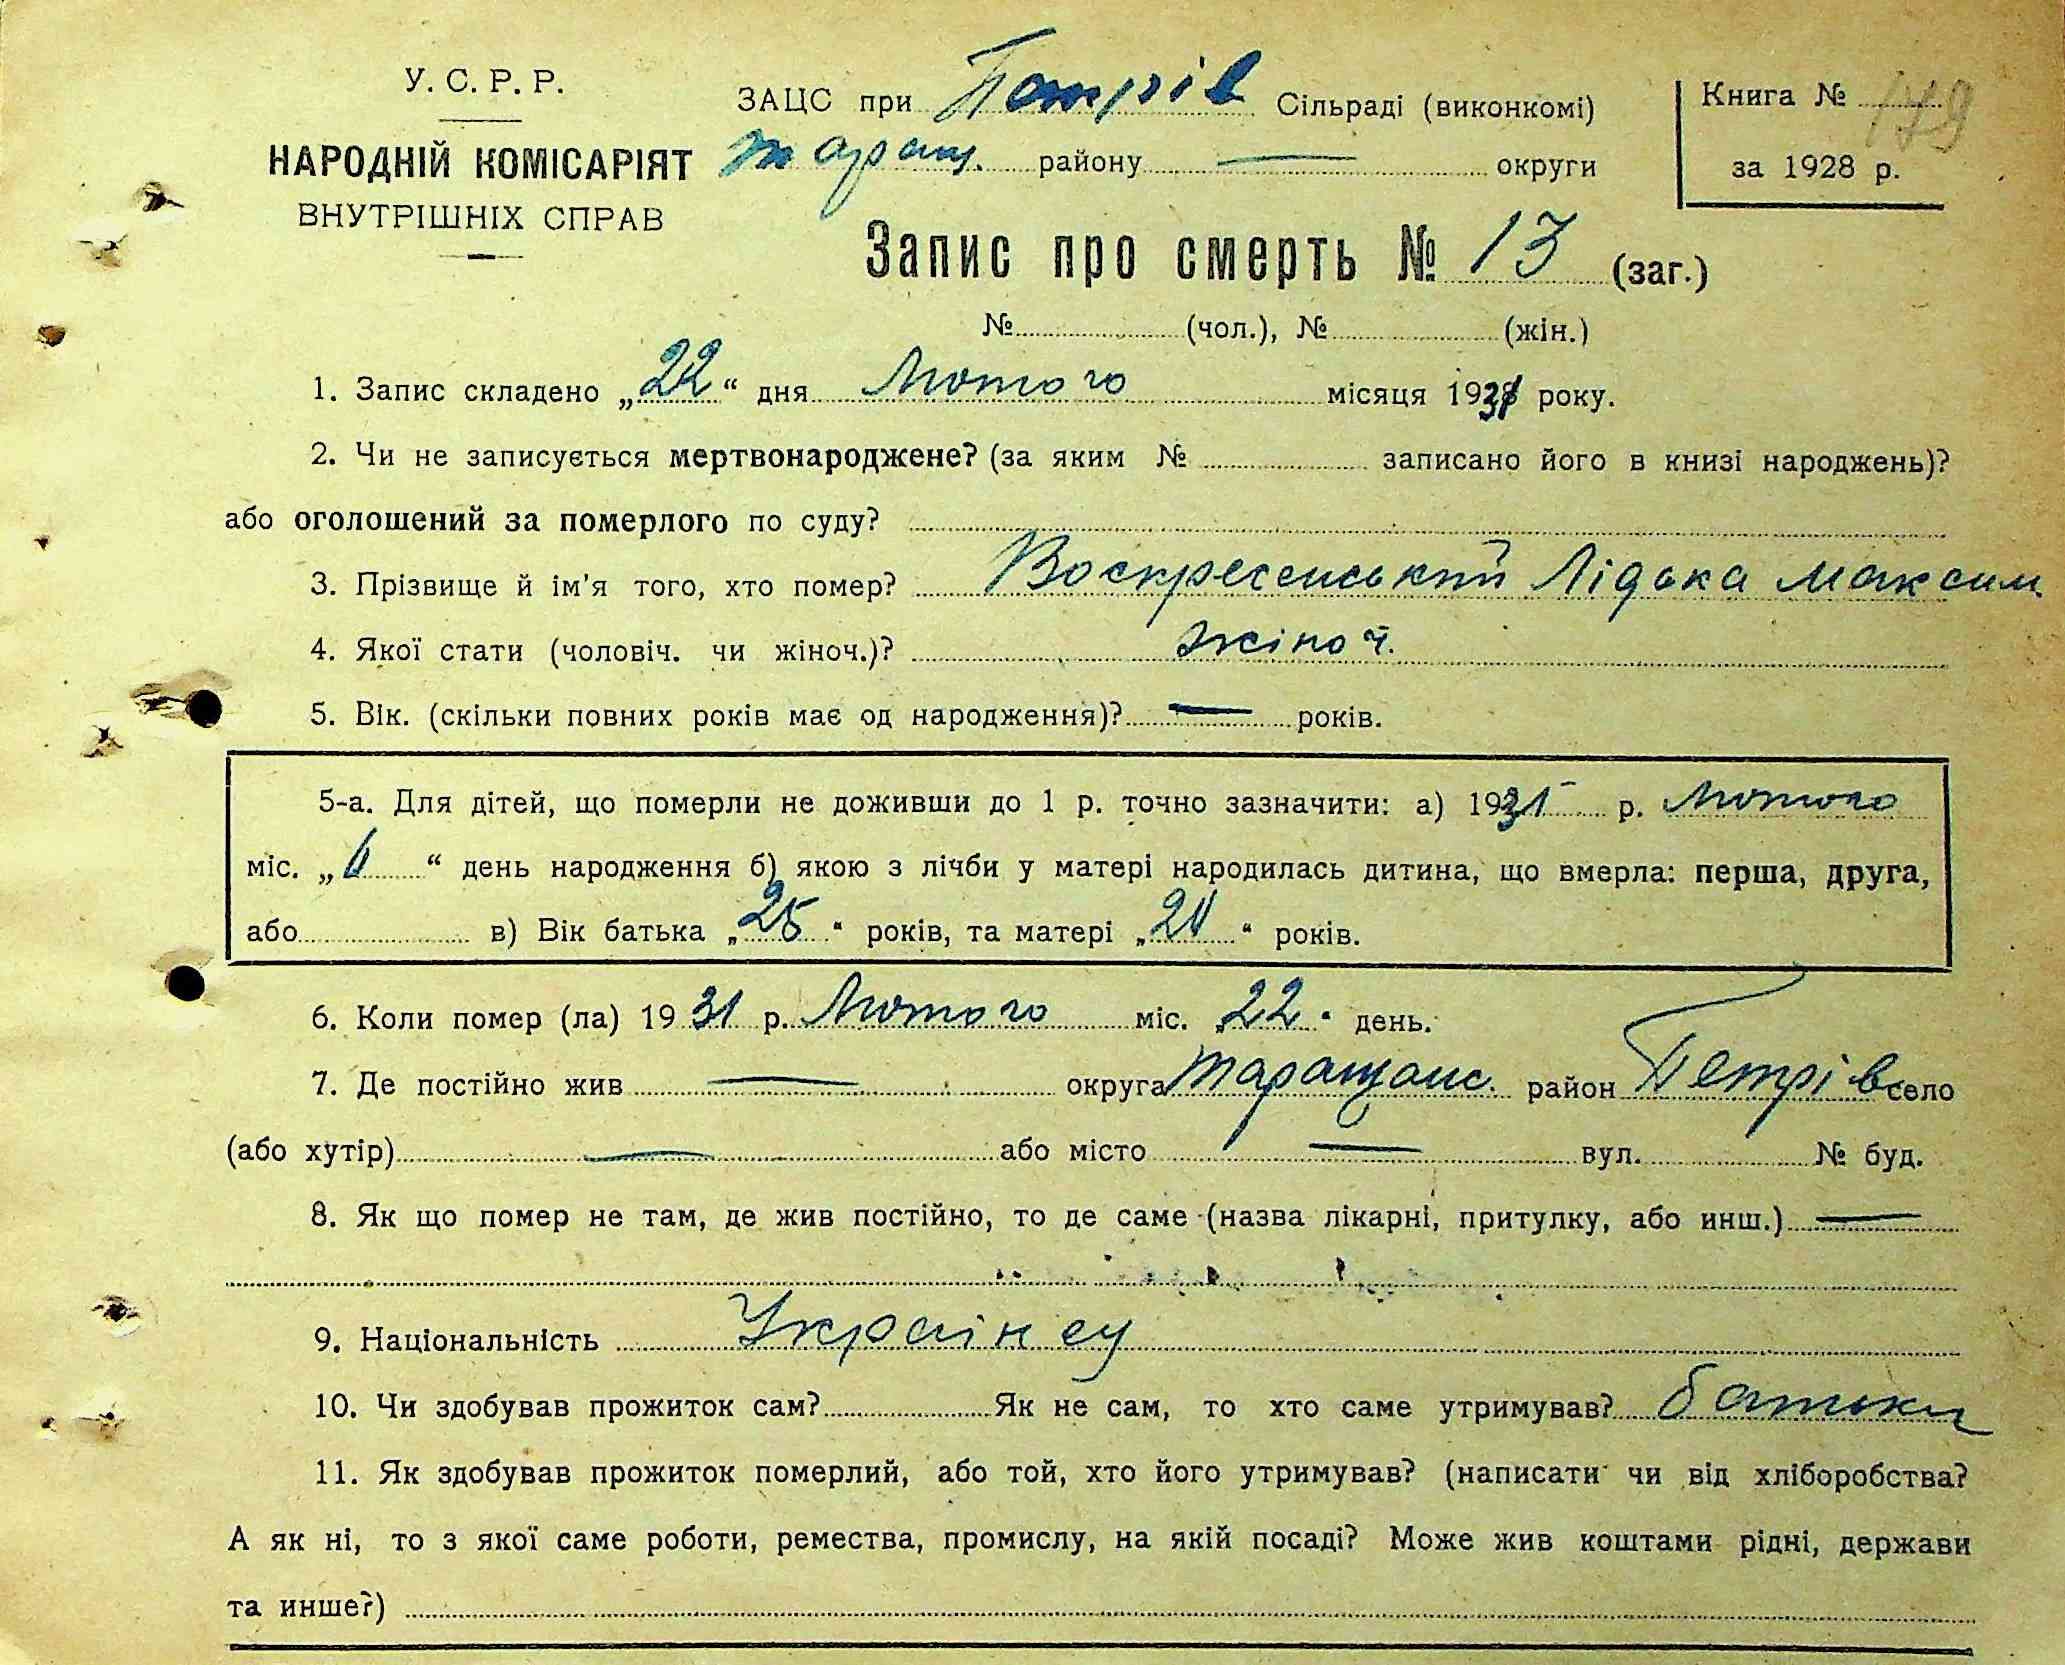 У. С. Р. Р.
НАРОДНІЙ КОМІСАРІЯТ
ВНУТРІШНІХ СПРАВ
ЗАЦС при Петрів Сільраді (виконкомі)
таращ. району — округи
Книга № 179
за 1928 р.
Запис про смерть № 13 (заг.)
№ (чол.), № (жін.)
1. Запис складено „22“ дня Лютого місяця 1931 року.
2. Чи не записується мертвонароджене? (за яким № записано його в книзі народжень)?
або оголошений за померлого по суду?
3. Прізвище й ім'я того, хто помер? Воскресенський Лідька Максим.
4. Якої стати (чоловіч. чи жіноч.)? жіноч.
5. Вік. (скільки повних років має од народження)? — років.
5-а. Для дітей, що померли не доживши до 1 р. точно зазначити: а) 1931 р. Лютого
міс. „ “ день народження б) якою з лічби у матері народилась дитина, що вмерла: перша, друга,
або в) Вік батька „25“ років, та матері „ “ років.
6. Коли помер (ла) 1931 р. Лютого міс. „22“ день.
7. Де постійно жив — округа Таращанс. район Петрів село
(або хутір) — або місто — вул. № буд.
8. Як що помер не там, де жив постійно, то де саме (назва лікарні, притулку, або инш.) —
9. Національність Українец
10. Чи здобував прожиток сам? Як не сам, то хто саме утримував? батьки
11. Як здобував прожиток померлий, або той, хто його утримував? (написати чи від хліборобства?
А як ні, то з якої саме роботи, ремества, промислу, на якій посаді? Може жив коштами рідні, держави
та инше?)